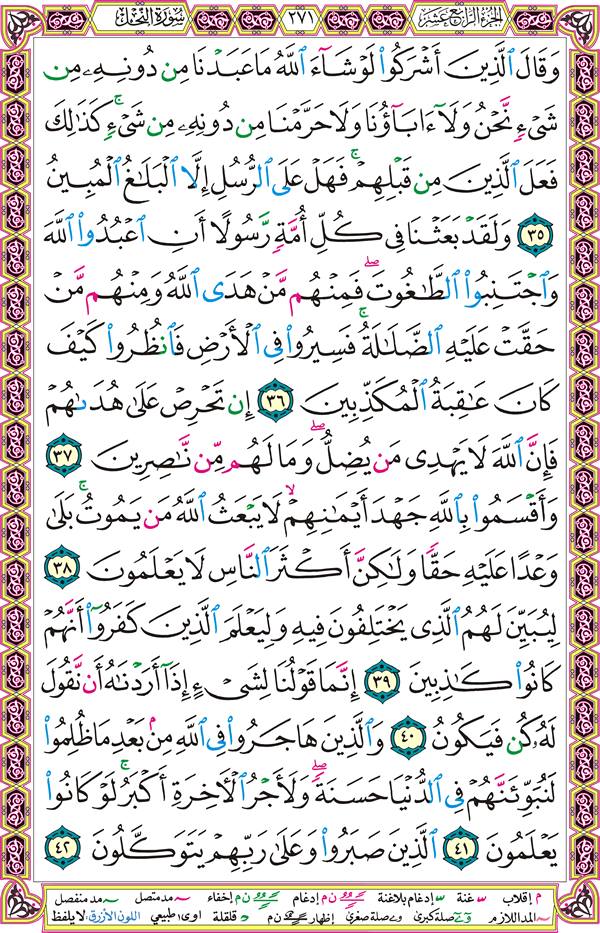 الجزء الرابع عشر ٢٧١ سورة النحل
وَقَالَ ٱلَّذِينَ أَشْرَكُوا۟ لَوْ شَآءَ ٱللَّهُ مَا عَبَدْنَا مِن دُونِهِۦ مِن
شَىْءٍۢ نَّحْنُ وَلَآ ءَابَآؤُنَا وَلَا حَرَّمْنَا مِن دُونِهِۦ مِن شَىْءٍۢ ۚ كَذَٰلِكَ
فَعَلَ ٱلَّذِينَ مِن قَبْلِهِمْ ۚ فَهَلْ عَلَى ٱلرُّسُلِ إِلَّا ٱلْبَلَٰغُ ٱلْمُبِينُ
٣٥ وَلَقَدْ بَعَثْنَا فِى كُلِّ أُمَّةٍۢ رَّسُولًا أَنِ ٱعْبُدُوا۟ ٱللَّهَ
وَٱجْتَنِبُوا۟ ٱلطَّٰغُوتَ ۖ فَمِنْهُم مَّنْ هَدَى ٱللَّهُ وَمِنْهُم مَّنْ
حَقَّتْ عَلَيْهِ ٱلضَّلَٰلَةُ ۚ فَسِيرُوا۟ فِى ٱلْأَرْضِ فَٱنظُرُوا۟ كَيْفَ
كَانَ عَٰقِبَةُ ٱلْمُكَذِّبِينَ ٣٦ إِن تَحْرِصْ عَلَىٰ هُدَىٰهُمْ
فَإِنَّ ٱللَّهَ لَا يَهْدِى مَن يُضِلُّ ۖ وَمَا لَهُم مِّن نَّٰصِرِينَ ٣٧
وَأَقْسَمُوا۟ بِٱللَّهِ جَهْدَ أَيْمَٰنِهِمْ ۙ لَا يَبْعَثُ ٱللَّهُ مَن يَمُوتُ ۚ بَلَىٰ
وَعْدًا عَلَيْهِ حَقًّۭا وَلَٰكِنَّ أَكْثَرَ ٱلنَّاسِ لَا يَعْلَمُونَ ٣٨
لِيُبَيِّنَ لَهُمُ ٱلَّذِى يَخْتَلِفُونَ فِيهِ وَلِيَعْلَمَ ٱلَّذِينَ كَفَرُوٓا۟ أَنَّهُمْ
كَانُوا۟ كَٰذِبِينَ ٣٩ إِنَّمَا قَوْلُنَا لِشَىْءٍ إِذَآ أَرَدْنَٰهُ أَن نَّقُولَ
لَهُۥ كُن فَيَكُونُ ٤٠ وَٱلَّذِينَ هَاجَرُوا۟ فِى ٱللَّهِ مِنۢ بَعْدِ مَا ظُلِمُوا۟
لَنُبَوِّئَنَّهُمْ فِى ٱلدُّنْيَا حَسَنَةًۭ ۖ وَلَأَجْرُ ٱلْءَاخِرَةِ أَكْبَرُ ۚ لَوْ كَانُوا۟
يَعْلَمُونَ ٤١ ٱلَّذِينَ صَبَرُوا۟ وَعَلَىٰ رَبِّهِمْ يَتَوَكَّلُونَ ٤٢
م إقلاب غنة إدغام بلاغنة ن م إدغام ن م إخفاء مد متصل مد منفصل
المد اللازم صلة كبرى صلة صغرى إظهار ن م قلقلة اوى طبيعي اللون الأزرق: لا يلفظ